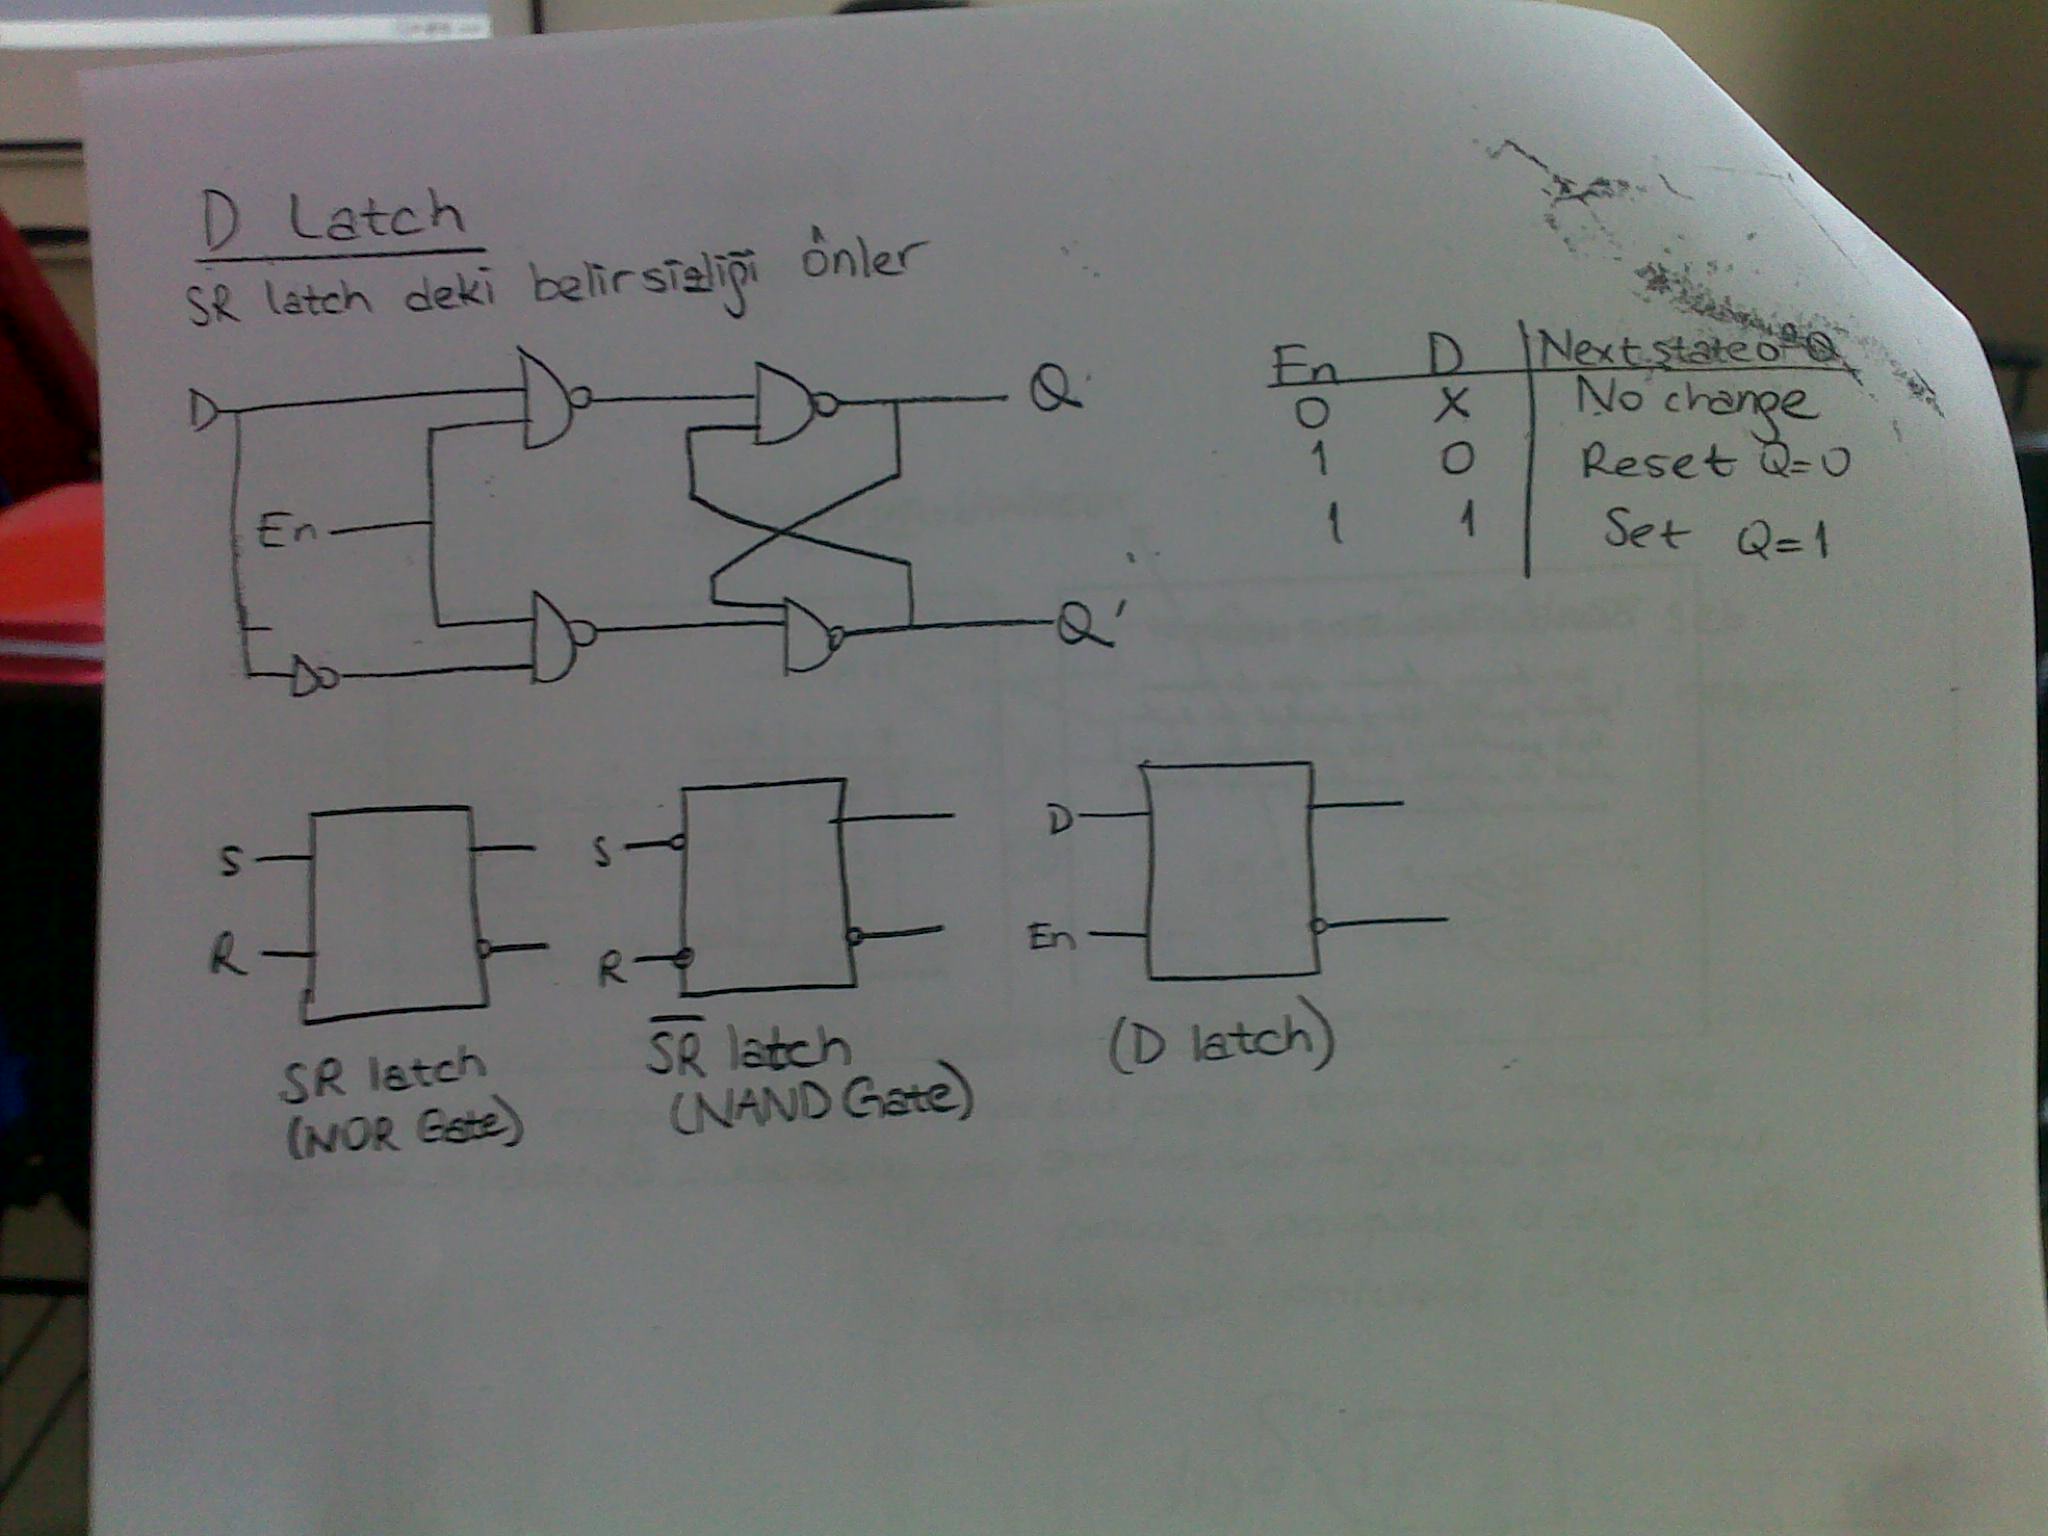 D Latch
SR latch deki belirsizliği önler
D
En
Q
Q'
En D Next state of Q
0 X No change
1 0 Reset Q=0
1 1 Set Q=1
S
R
SR latch
(NOR Gate)
S
R
S̅R̅ latch
(NAND Gate)
D
En
(D latch)